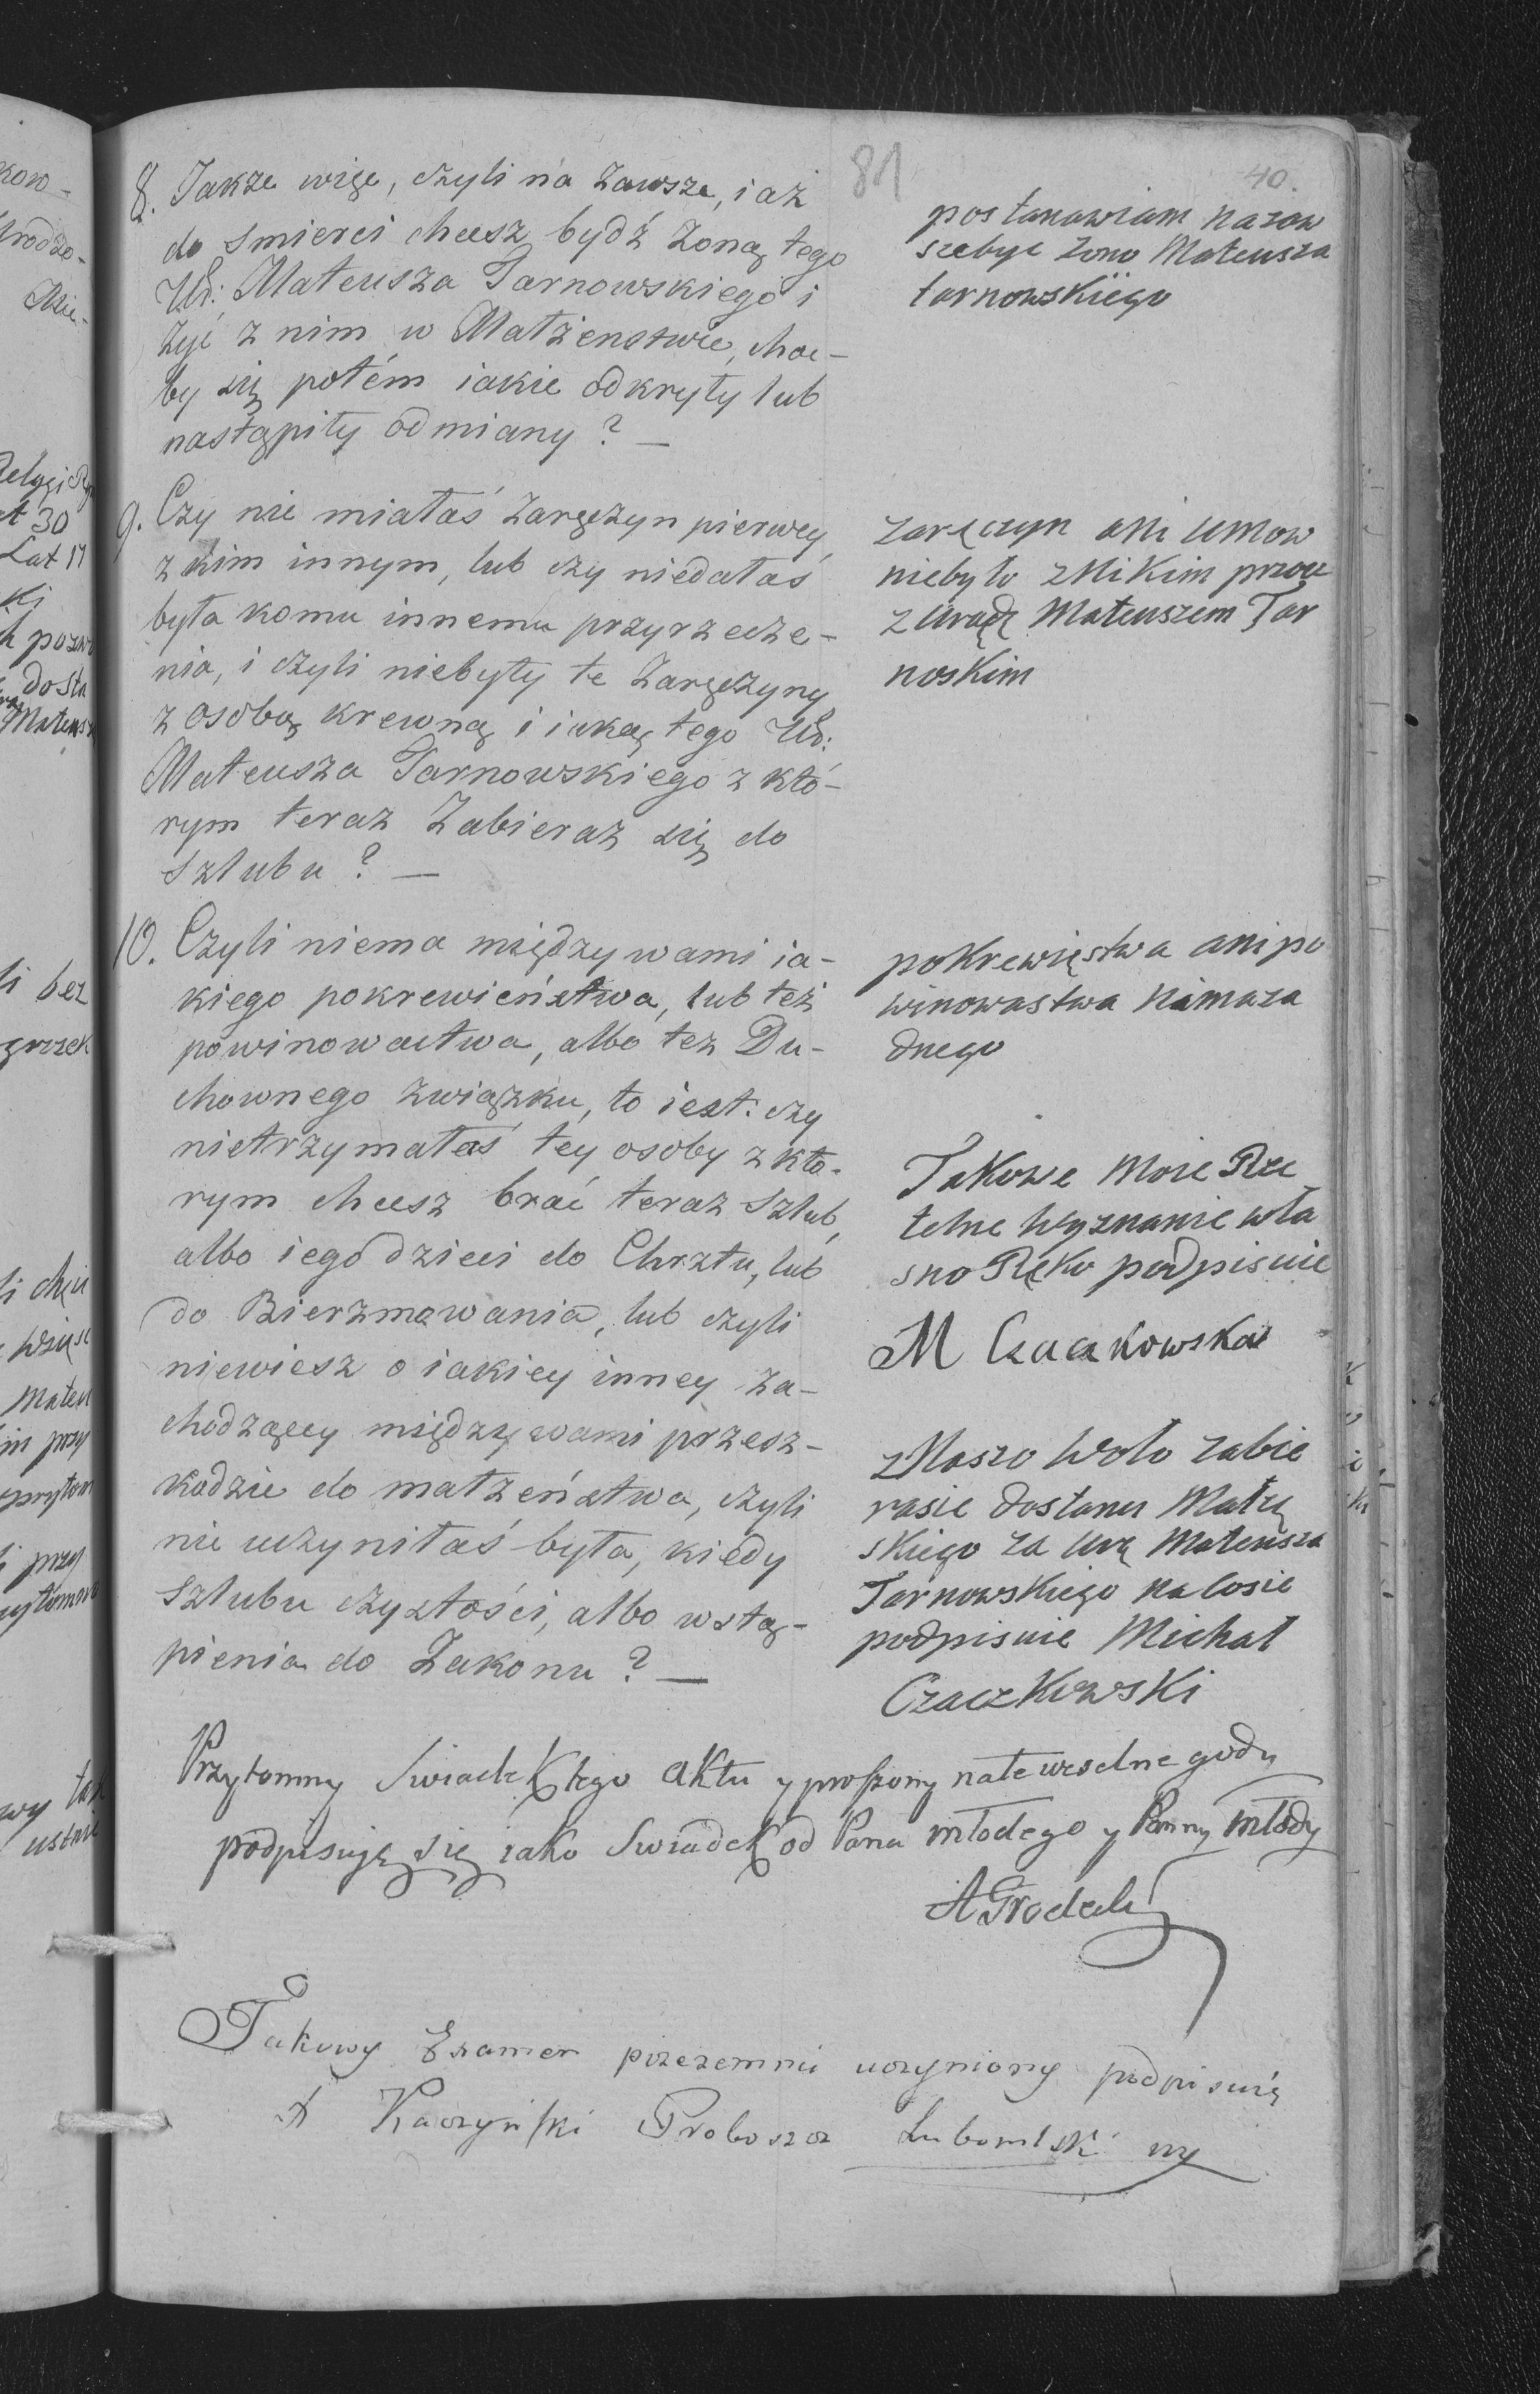 81
40.
8. Jakże więc, czyli na zawsze, i aż
do smierci chcesz bydź żoną tego
Ur: Mateusza Tarnowskiego i
żyć z nim w Małżenstwie, choc-
by się potém iakie odkryły lub
nastąpiły odmiany? —
postanawiam nazaw
szebyc zono Mateusza
tarnowskiego
9. Czy nie miałaś zaręczyn pierwey
z kim innym, lub czy niedałaś
była komu innemu przyrzecze-
nia, i czyli niebyły te zaręczyny
z osobą krewną iaką tego Ur:
Mateusza Tarnowskiego z któ-
rym teraz zabierasz się do
szlubu? —
zaręczyn ani umow
niebyło zNikim procz
z Mateuszem Tar
noskim
10. Czyli niema między wami ia-
kiego pokrewieństwa, lub też
powinowactwa, albo też Du-
chownego związku, to iest: czy
nietrzymałaś tey osoby z któ-
rym chcesz brać teraz szlub,
albo iego dzieci do Chrztu, lub
do Bierzmowania, lub czyli
niewiesz o iakiey inney za-
chodzącey między wami przesz-
kodzie do małżeństwa, czyli
nie uczyniłaś była, kiedy
szlubu czystości, albo wstą-
pienia do Zakonu? —
pokrewięstwa anipo
winowastwa Nimaza
dnego
Takowe Moie Rze
telne wyznanie wła
sno Ręko podpisuie
M Czaczkowska
zNaszo Wolo zabie
rasie dostanu Małzę
skiego za Mateusza
Tarnowskiego nacosie
podpisuie Michał
Czaczkowski
Przytomny Swiadek tego aktu y proszony nate weselne gody
podpisuję się iako Swiadek od Pana młodego y Panny młody
A Grodecki
Takowy Examen przezemnie uczyniony podpisuię
X Kaczyński Proboszcz Luboml̄ski